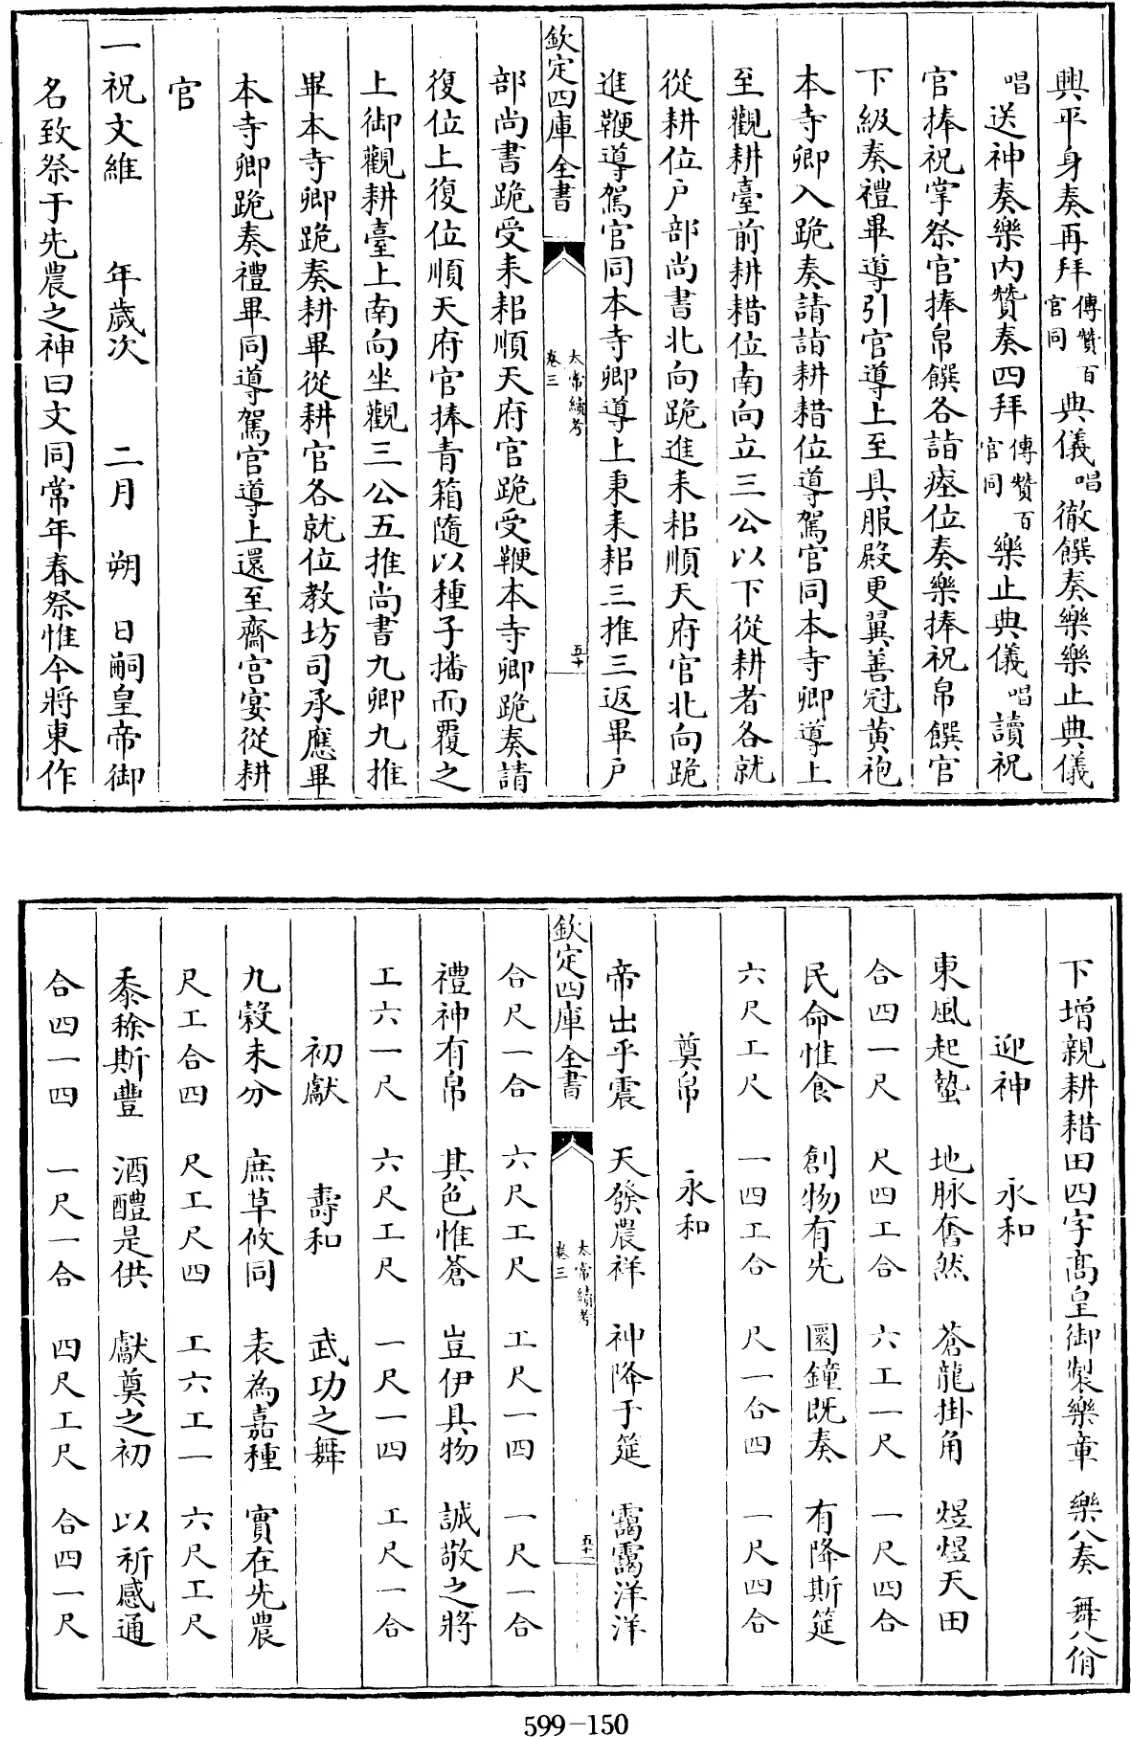 興平身奏再拜傳贊百官同典儀唱徹饌奏樂樂止典儀
唱送神奏樂內贊奏四拜傳贊百官同樂止典儀唱讀祝
官捧祝掌祭官捧帛饌各詣瘞位奏樂捧祝帛饌官
下級奏禮畢導引官導上至具服殿更翼善冠黄袍
本寺卿入跪奏請詣耕耤位導駕官同本寺卿導上
至觀耕臺前耕耤位南向立三公以下從耕者各就
從耕位户部尚書北向跪進耒耜順天府官北向跪
進鞭導駕官同本寺卿導上秉耒耜三推三返畢户
欽定四庫全書
太常續考
卷三
五十
部尚書跪受耒耜順天府官跪受鞭本寺卿跪奏請
復位上復位順天府官捧青箱隨以種子播而覆之
上御觀耕臺上南向坐觀三公五推尚書九卿九推
畢本寺卿跪奏耕畢從耕官各就位教坊司承應畢
本寺卿跪奏禮畢同導駕官導上還至齋宮宴從耕
官
一祝文維　年歲次　二月　朔　日嗣皇帝御
名致祭于先農之神曰文同常年春祭惟今將東作
下增親耕耤田四字髙皇御製樂章　樂八奏　舞八佾
迎神　永和
東風起蟄　地脉奮然　蒼龍掛角　煜煜天田
合四一尺　尺四工合　六工一尺　一尺四合
民命惟食　創物有先　圜鐘既奏　有降斯筵
六尺工尺　一四工合　尺一合四　一尺四合
奠帛　永和
帝出乎震　天發農祥　神降于筵　靄靄洋洋
欽定四庫全書
太常續考
卷三
五十一
合尺一合　六尺工尺　工尺一四　一尺一合
禮神有帛　其色惟蒼　豈伊具物　誠敬之將
工六一尺　六尺工尺　一尺一四　工尺一合
初獻　壽和　武功之舞
九穀未分　庶草攸同　表為嘉種　實在先農
尺工合四　尺工尺四　工六工一　六尺工尺
黍稌斯豐　酒醴是供　獻奠之初　以祈感通
合四一四　一尺一合　四尺工尺　合四一尺
599-150